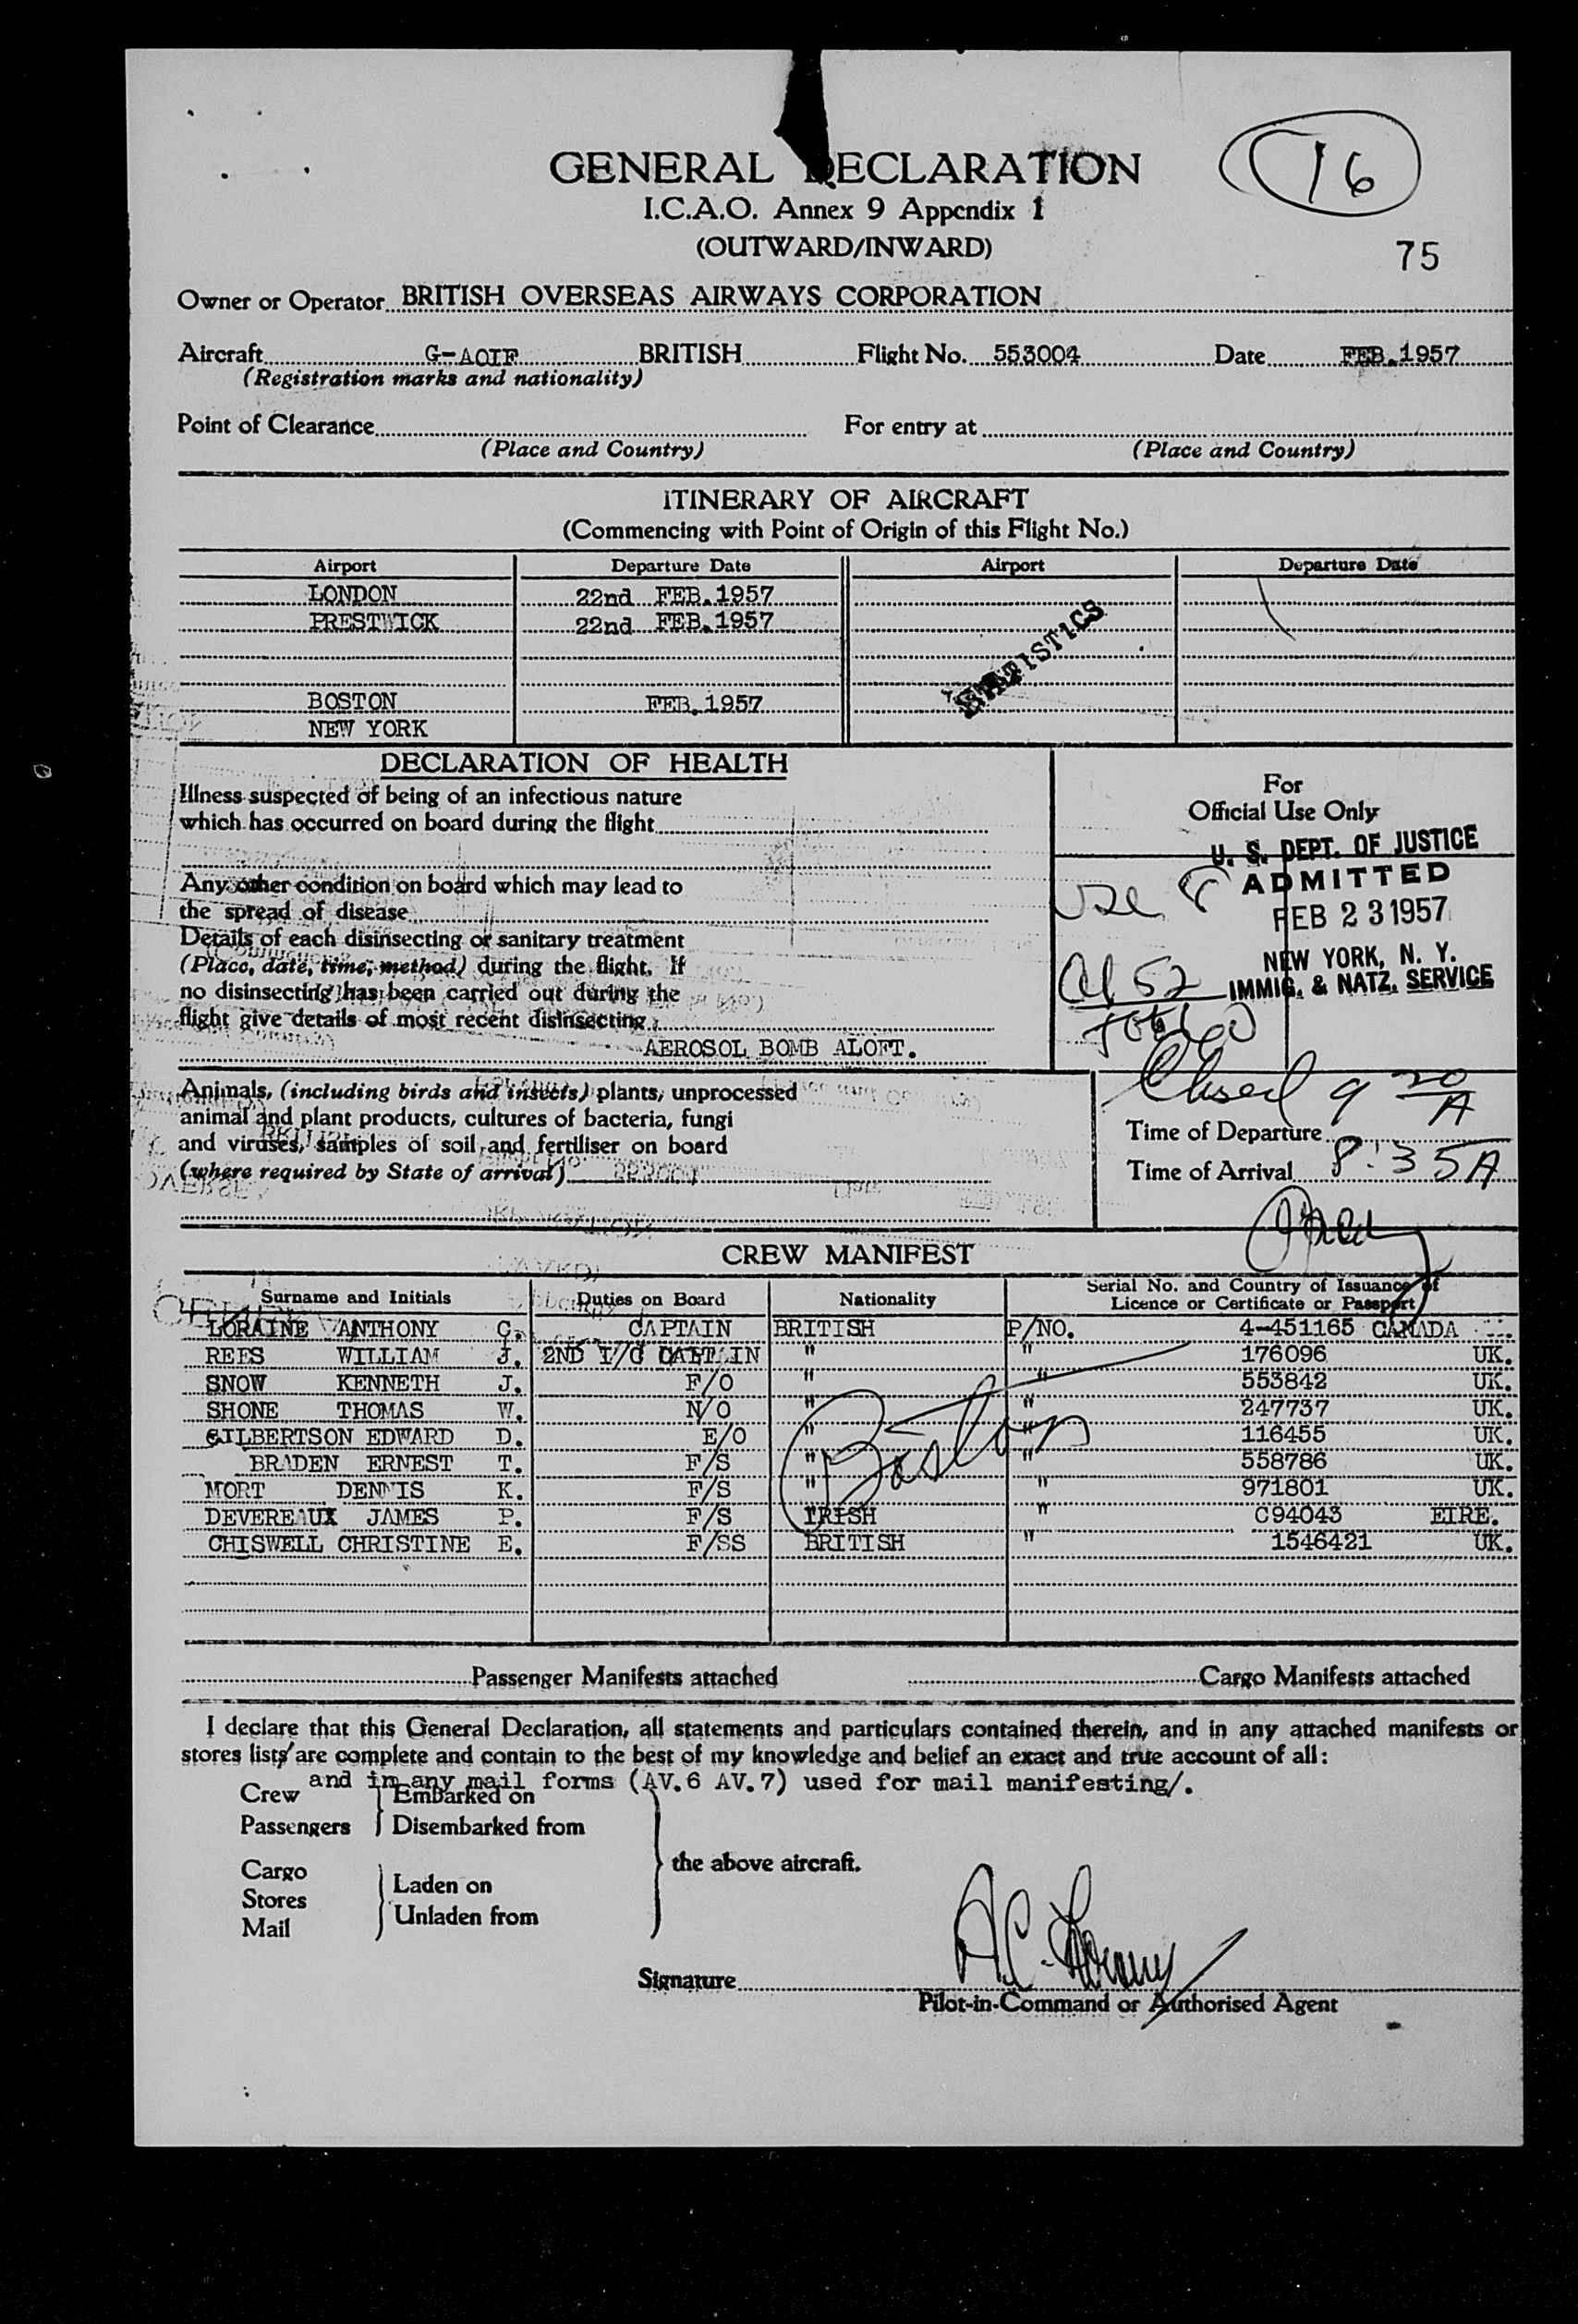 16
GENERAL DECLARATION
I.C.A.O. Annex 9 Appendix 1
(OUTWARD/INWARD)
75
Owner or Operator BRITISH OVERSEAS AIRWAYS CORPORATION
Aircraft G-AOIF BRITISH Flight No. 553004 Date FEB.1957
(Registration marks and nationality)
Point of Clearance For entry at
(Place and Country) (Place and Country)
ITINERARY OF AIRCRAFT
(Commencing with Point of Origin of this Flight No.)
Airport Departure Date Airport Departure Date
LONDON 22nd FEB.1957
PRESTWICK 22nd FEB.1957
STATISTICS
BOSTON FEB.1957
NEW YORK
DECLARATION OF HEALTH
Illness suspected of being of an infectious nature
which has occurred on board during the flight
Any other condition on board which may lead to
the spread of disease
Details of each disinsecting or sanitary treatment
(Place, date, time, method) during the flight. If
no disinsecting has been carried out during the
flight give details of most recent disinsecting
AEROSOL BOMB ALOFT.
For
Official Use Only
U. S. DEPT. OF JUSTICE
ADMITTED
FEB 23 1957
NEW YORK, N. Y.
IMMIG. & NATZ. SERVICE
52
Closed 9 20 A
Animals, (including birds and insects) plants, unprocessed
animal and plant products, cultures of bacteria, fungi
and viruses, samples of soil and fertiliser on board
(where required by State of arrival)
Time of Departure
Time of Arrival 8:35A
CREW MANIFEST
Surname and Initials Duties on Board Nationality Serial No. and Country of Issuance of
Licence or Certificate or Passport
LORAINE ANTHONY C. CAPTAIN BRITISH P/NO. 4-451165 CANADA
REES WILLIAM J. 2ND I/C CAPTAIN " " 176096 UK.
SNOW KENNETH J. F/O " " 553842 UK.
SHONE THOMAS W. N/O " " 247737 UK.
GILBERTSON EDWARD D. E/O " " 116455 UK.
BRADEN ERNEST T. F/S " " 558786 UK.
MORT DENNIS K. F/S " " 971801 UK.
DEVEREAUX JAMES P. F/S IRISH " C94043 EIRE.
CHISWELL CHRISTINE E. F/SS BRITISH " 1546421 UK.
Boston
Passenger Manifests attached Cargo Manifests attached
I declare that this General Declaration, all statements and particulars contained therein, and in any attached manifests or
stores lists/are complete and contain to the best of my knowledge and belief an exact and true account of all:
and in any mail forms (AV.6 AV.7) used for mail manifesting/.
Crew Embarked on
Passengers Disembarked from
the above aircraft.
Cargo
Stores Laden on
Mail Unladen from
Signature
Pilot-in-Command or Authorised Agent